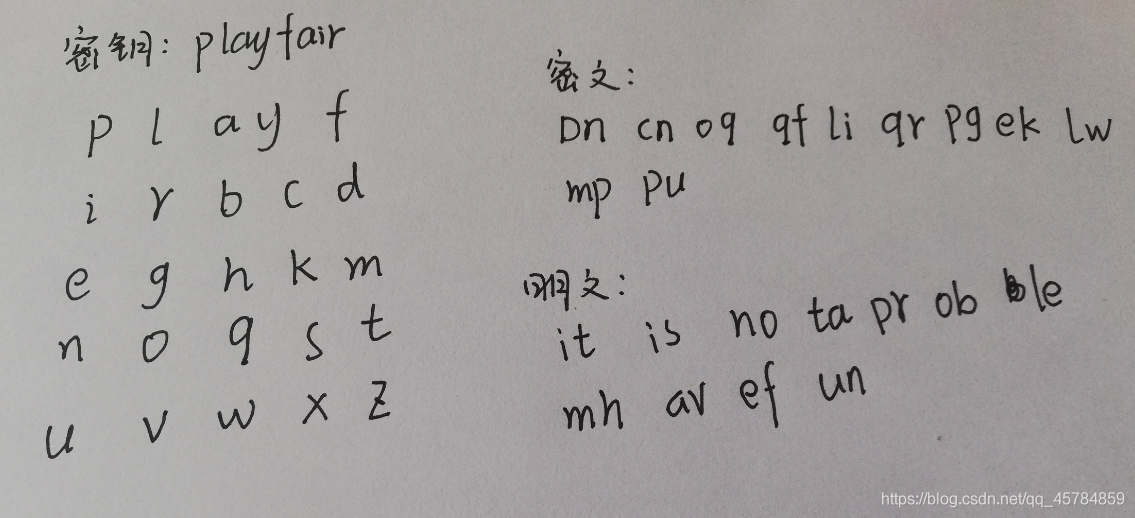 密钥: playfair
p l a y f
i r b c d
e g h k m
n o q s t
u v w x z
密文:
Dn cn oq qf li qr pg ek lw
mp pu
明文:
it is no ta pr ob le
mh av ef un
https://blog.csdn.net/qq_45784859